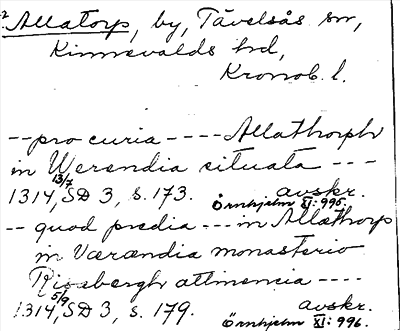 Allatorp, by, Tävelsås sn,
Kinnevalds hd,
Kronob. l.
--pro curia----Allathorph
in Werendia situata ---
1314 13/7, SD 3, s. 173. avskr. Örnhjelm XI: 995.
-- quod predia ---in Allæthorp
inVærændia monasterio
Risabergh attinencia ----
1314 5/9, SD 3, s. 179. avskr.
Örnhjelm XI: 996.